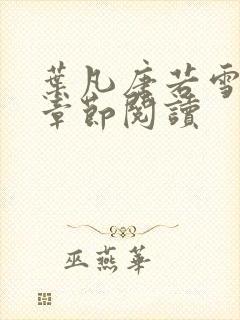 葉凡唐若雪
章節閱讀
巫燕華